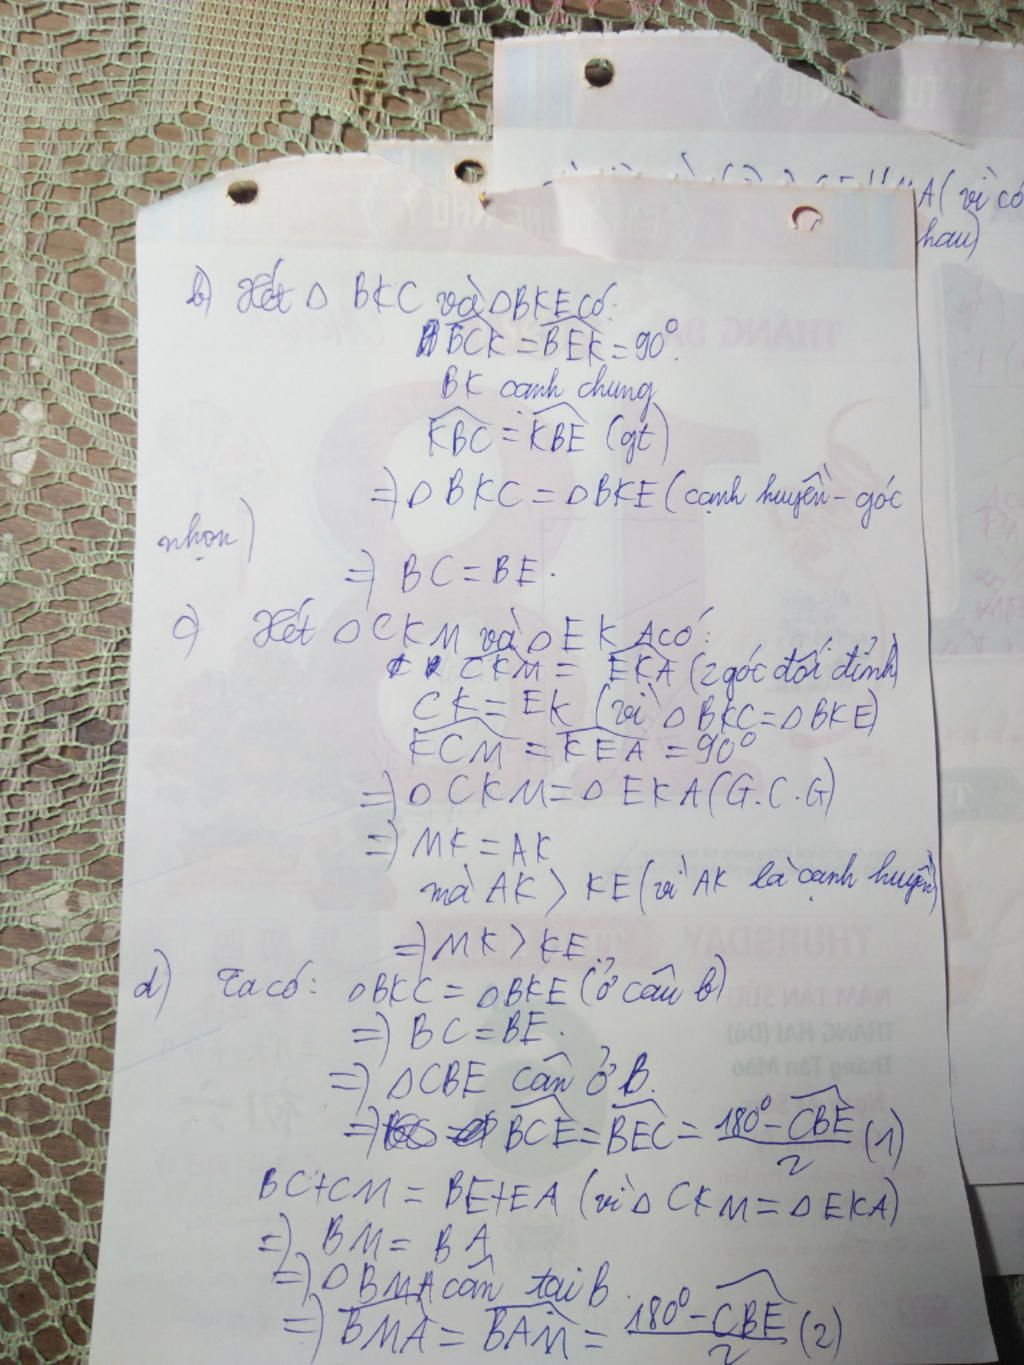 A (vì có
hau)
b) Xét Δ BKC và ΔBKE có:
BCK = BEK = 90°.
BK cạnh chung
KBC = KBE (gt)
=> Δ BKC = Δ BKE (cạnh huyền - góc
nhọn)
=> BC = BE.
c) Xét Δ CKM và Δ EKA có:
CKM = EKA (2 góc đối đỉnh)
CK = EK (vì Δ BKC = Δ BKE)
KCM = KEA = 90°
=> Δ CKM = Δ EKA (G.C.G)
=> MK = AK
mà AK > KE (vì AK là cạnh huyền)
=> MK > KE.
d) Ta có: ΔBKC = ΔBKE (ở câu b)
=> BC = BE.
=> ΔCBE cân ở B.
=> BCE = BEC = 180° - CBE / 2 (1)
BC + CM = BE + EA (vì Δ CKM = Δ EKA)
=> BM = BA
=> Δ BMA cân tại B.
=> BMA = BAM = 180° - CBE / 2 (2)
THURSDAY
NĂM TÂN SỬU
THÁNG HAI (Đủ)
Tháng Tân Mão